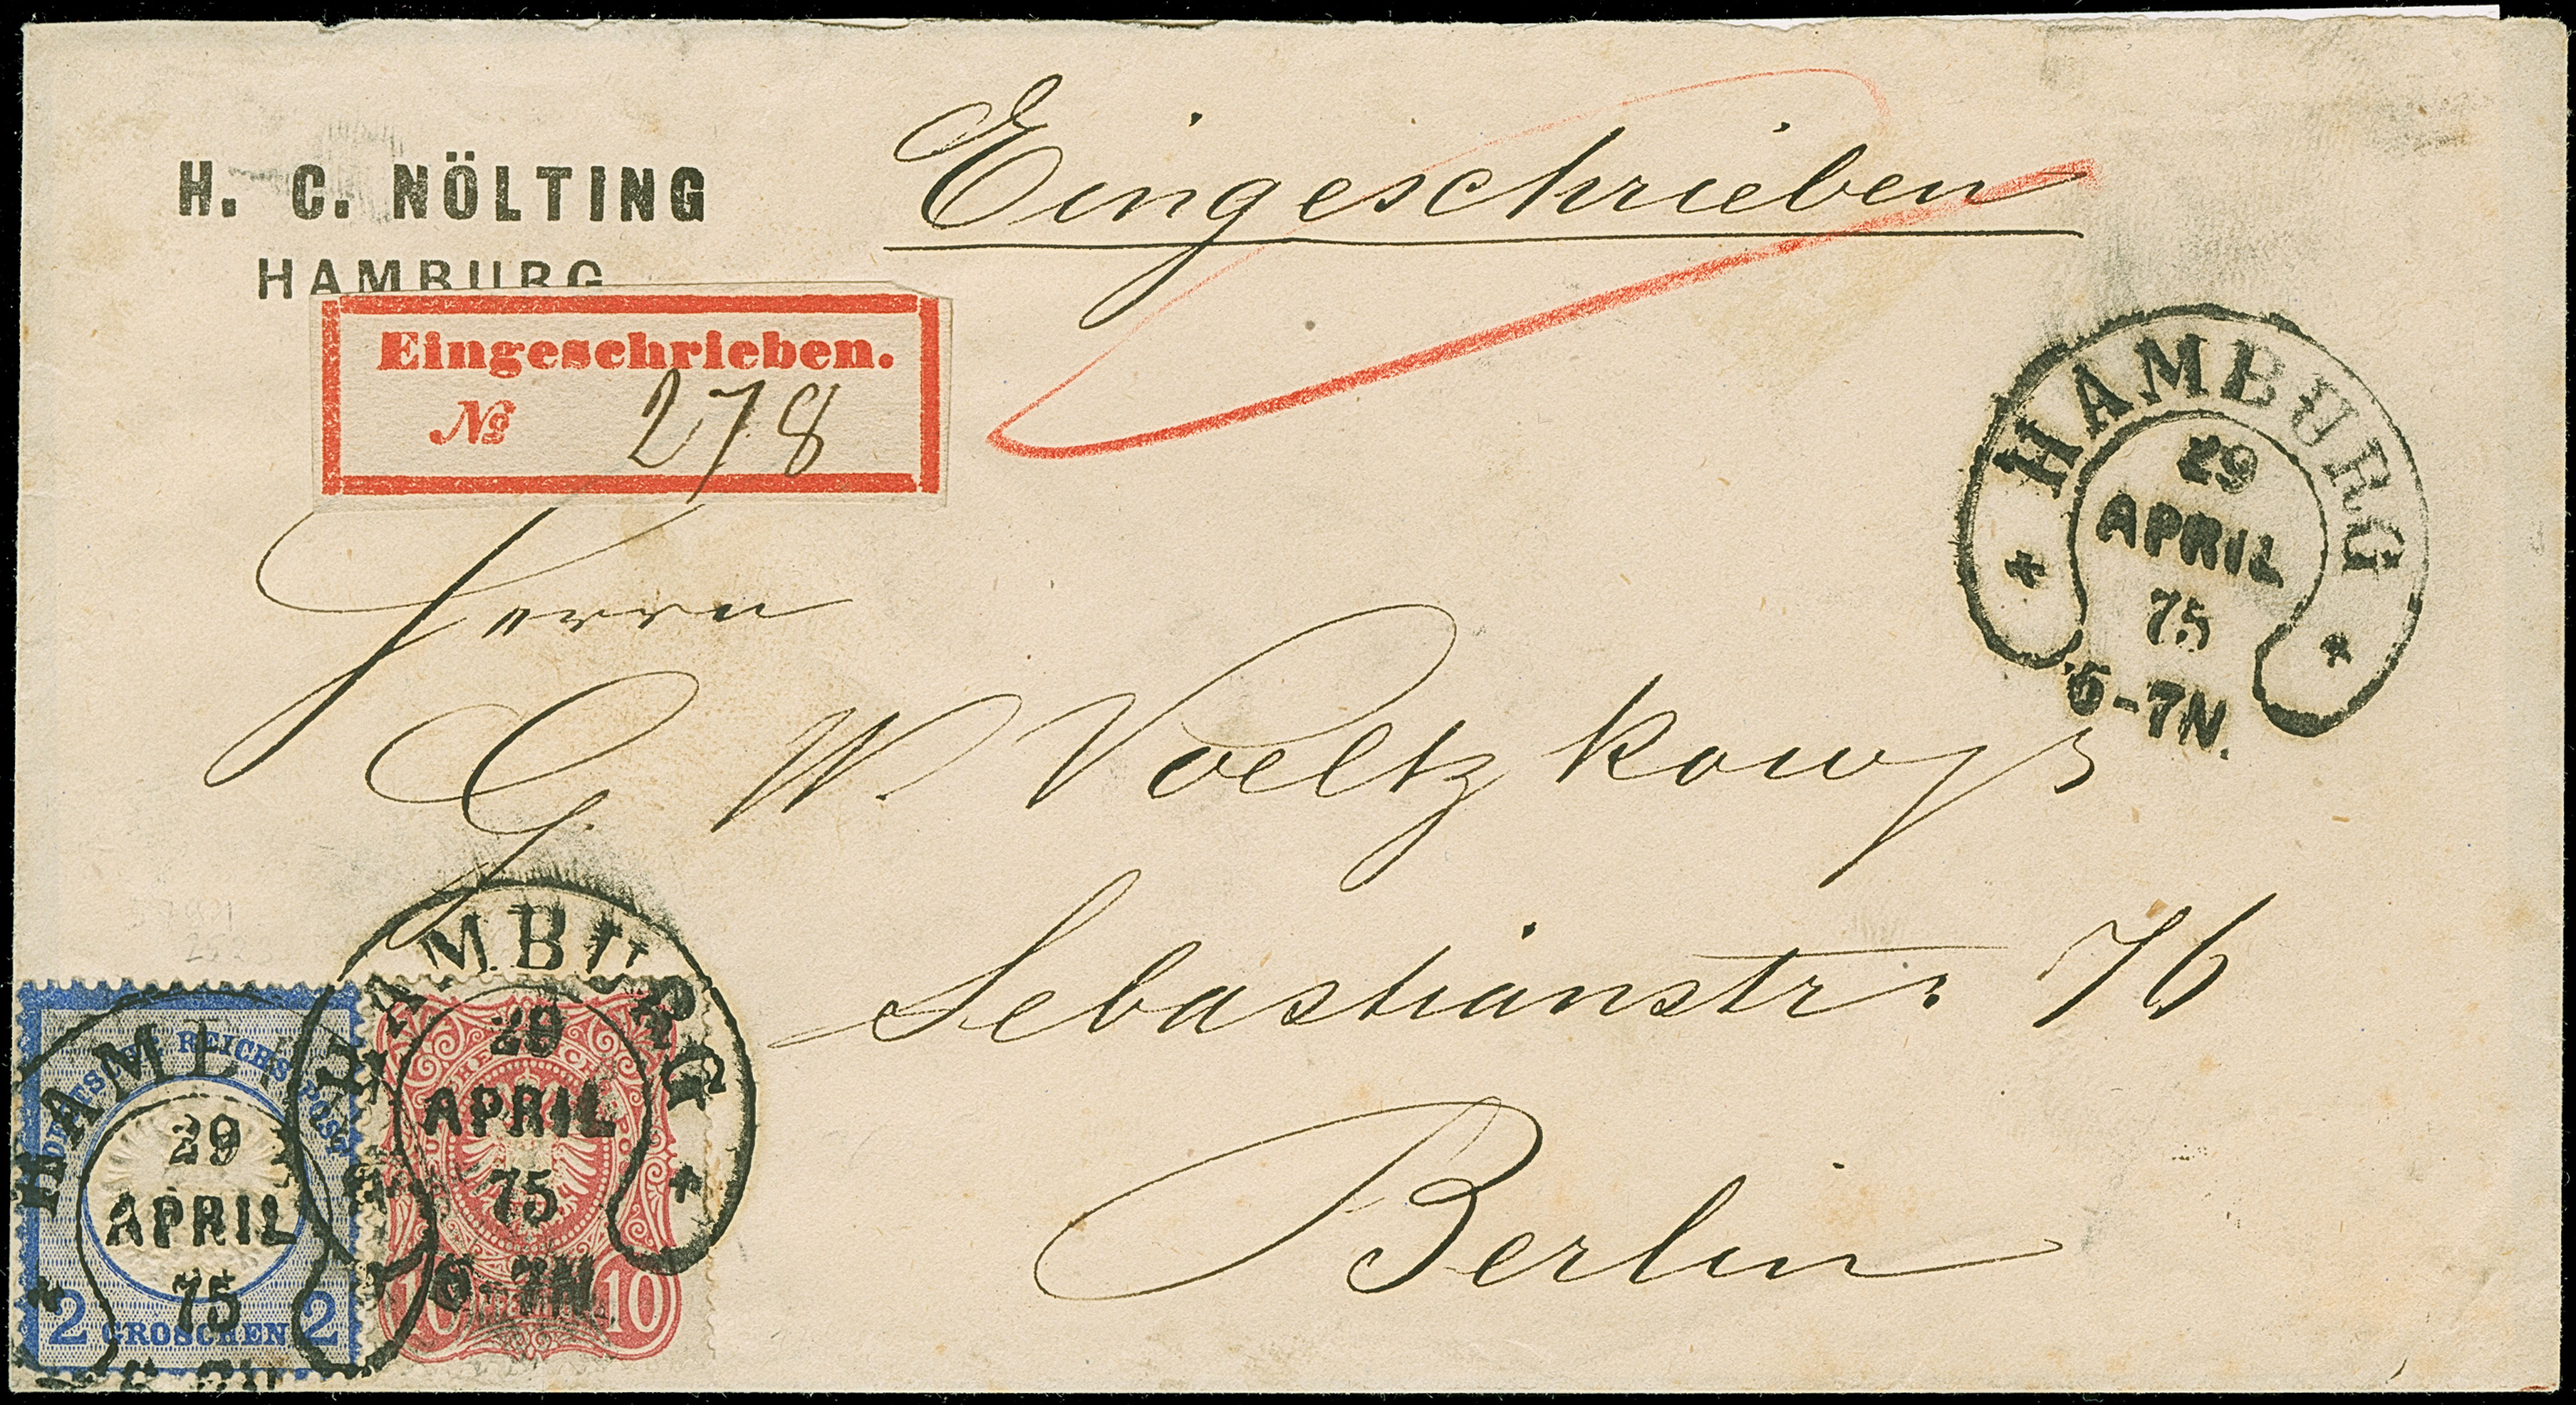 H. C. NÖLTING
HAMBURG
Eingeschrieben
Eingeschrieben.
№ 278
HAMBURG
29
APRIL
75
6-7N.
Herrn
G. W. Voeltzkow jr
Sebastianstr. 76
Berlin
HAMBURG
29
APRIL
75
6-7N.
DEUTSCHE REICHS-POST
2 GROSCHEN 2
HAMB
29
APRIL
75
10 PFENNIGE 10